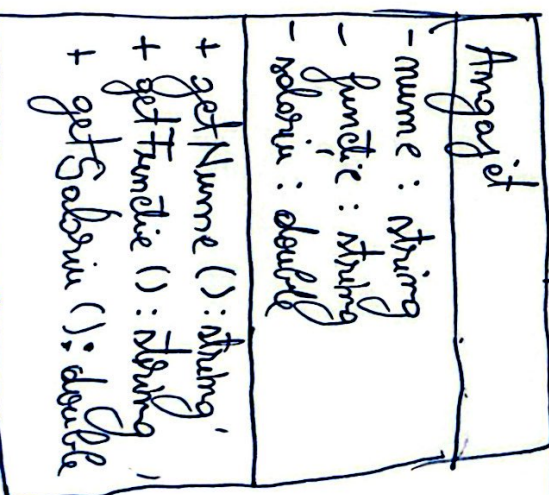 Angajat
- nume : string
- funcție : string
- salariu : double
+ getNume () : string
+ getFuncție () : string
+ getSalariu () : double